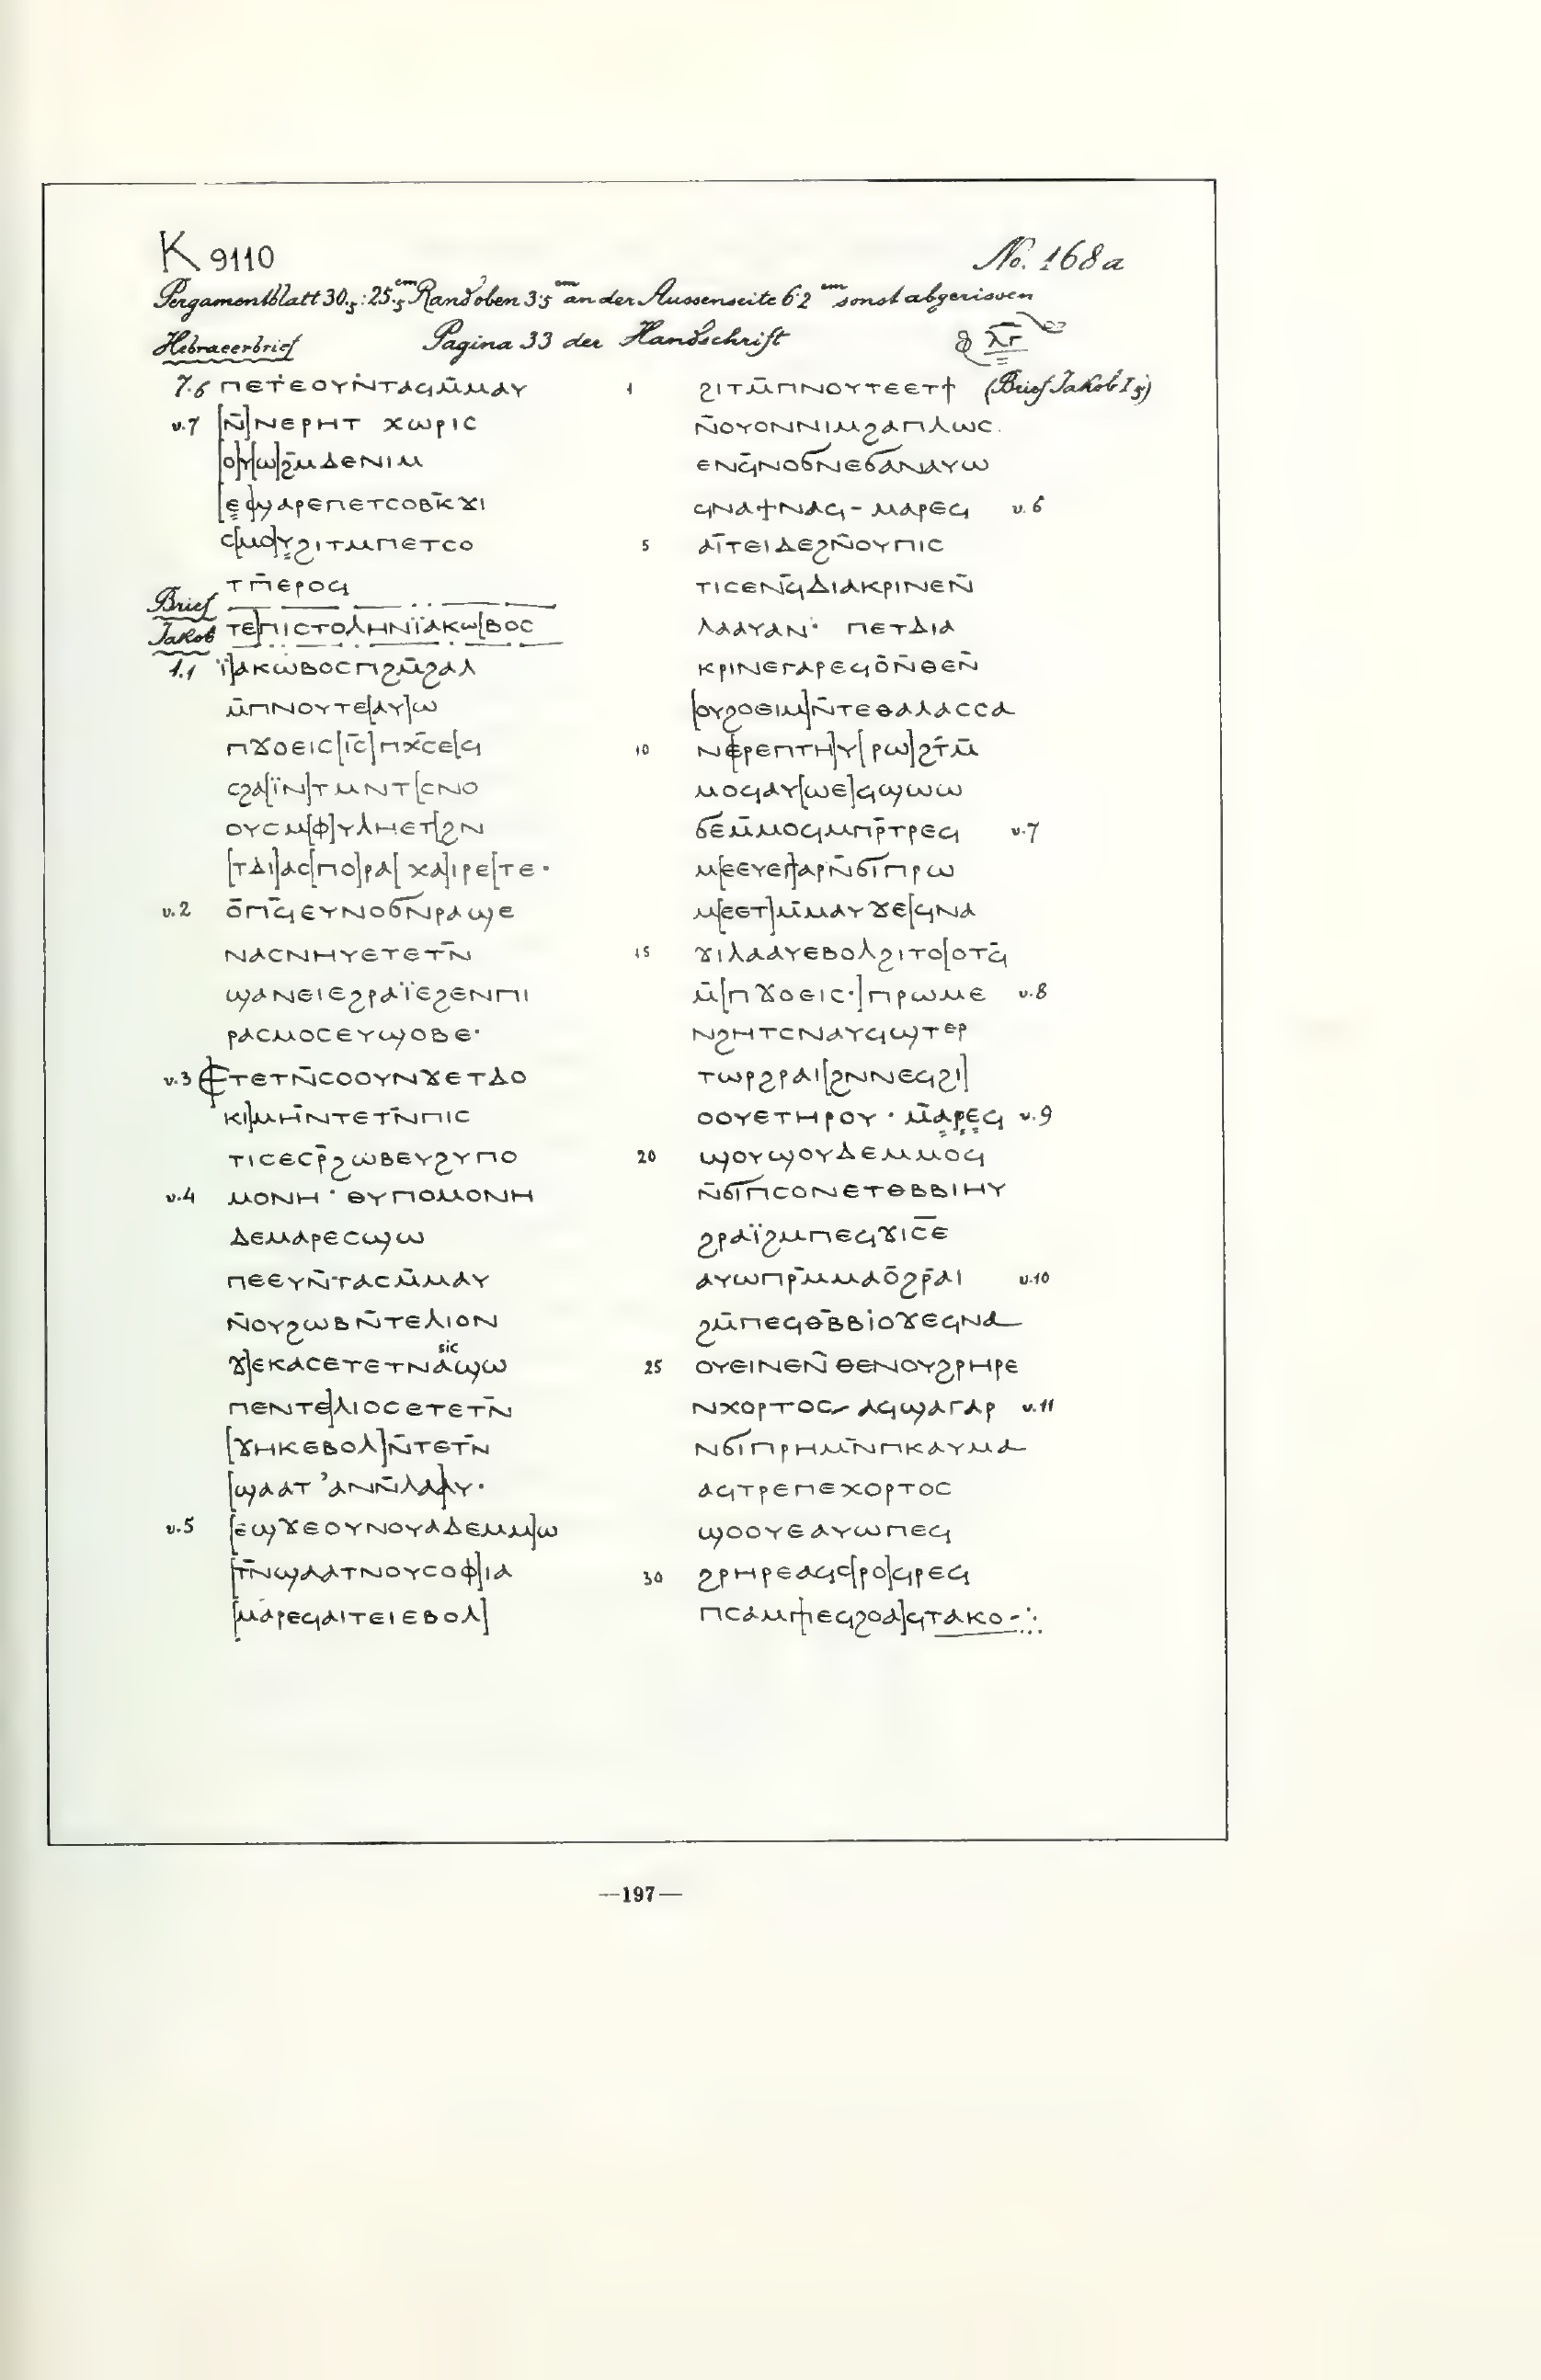 K 9110 No. 168a
Pergamentblatt 30.5 : 25.5 cm Rand oben 3.5 cm an der Aussenseite 6.2 cm sonst abgerissen
Hebraeerbrief Pagina 33 der Handschrift ⲗ̅ⲅ̅
7.6 ⲡⲉⲧⲉⲟⲩⲛⲧⲁϥⲙ̄ⲙⲁⲩ
v.7 [ⲛ̄]ⲛⲉⲣⲏⲧ ⲭⲱⲣⲓⲥ
[ⲟ]ⲩ[ⲱ]ϩⲙ̄ⲇⲉⲛⲓⲙ
[ⲉϥ]ϣⲁⲣⲉⲡⲉⲧⲥⲟⲃⲕ̄ϫⲓ
ⲥ[ⲙⲟ]ⲩϩⲓⲧⲙⲡⲉⲧⲥⲟ
ⲧⲡ̄ⲉⲣⲟϥ
Brief Jakob ⲧⲉ]ⲡⲓⲥⲧⲟⲗⲏⲛⲓ̈ⲁⲕⲱ[ⲃⲟⲥ
1.1 ⲓ̈]ⲁⲕⲱⲃⲟⲥⲡϩⲙ̄ϩⲁⲗ
ⲙ̄ⲡⲛⲟⲩⲧⲉ[ⲁⲩ]ⲱ
ⲡϫⲟⲉⲓⲥ[ⲓ̅ⲥ̅]ⲡⲭ̅ⲥ̅ⲉ[ϥ
ⲥϩⲁ[ⲓ̈ⲛ]ⲧⲙⲛⲧ[ⲥⲛⲟ
ⲟⲩⲥⲙ[ⲫ]ⲩⲗⲏⲉⲧ[ϩⲛ
[ⲧⲇⲓ]ⲁⲥ[ⲡⲟ]ⲣⲁ[ ⲭⲁ]ⲓⲣⲉ[ⲧⲉ·
v.2 ⲟ̄ⲡϥ̄ⲉⲩⲛⲟϭⲛⲣⲁϣⲉ
ⲛⲁⲥⲛⲏⲩⲉⲧⲉⲧⲛ̄
ϣⲁⲛⲉⲓⲉϩⲣⲁⲓ̈ⲉϩⲉⲛⲡⲓ
ⲣⲁⲥⲙⲟⲥⲉⲩϣⲟⲃⲉ·
v.3 ⲉⲧⲉⲧⲛ̄ⲥⲟⲟⲩⲛϫⲉⲧⲇⲟ
ⲕⲓ]ⲙⲏⲛ̄ⲧⲉⲧⲛ̄ⲡⲓⲥ
ⲧⲓⲥⲉⲥⲣ̄ϩⲱⲃⲉⲩϩⲩⲡⲟ
v.4 ⲙⲟⲛⲏ· ⲑⲩⲡⲟⲙⲟⲛⲏ
ⲇⲉⲙⲁⲣⲉⲥϣⲱ
ⲡⲉⲉⲩⲛ̄ⲧⲁⲥⲙ̄ⲙⲁⲩ
ⲛ̄ⲟⲩϩⲱⲃⲛ̄ⲧⲉⲗⲓⲟⲛ
ϫ]ⲉⲕⲁⲥⲉⲧⲉⲧⲛⲁϣⲱ sic
ⲡⲉⲛⲧⲉ]ⲗⲓⲟⲥⲉⲧⲉⲧⲛ̄
[ϫⲏⲕⲉⲃⲟⲗ]ⲛ̄ⲧⲉⲧⲛ̄
[ϣⲁⲁⲧ ’ⲁⲛⲛ̄ⲗⲁ]ⲁⲩ·
v.5 [ⲉϣϫⲉⲟⲩⲛⲟⲩⲁⲇⲉⲙⲙ]ⲱ
[ⲧⲛ̄ϣⲁⲁⲧⲛⲟⲩⲥⲟⲫ]ⲓⲁ
[ⲙⲁⲣⲉϥⲁⲓⲧⲉⲓⲉⲃⲟⲗ]
1 ϩⲓⲧⲙ̄ⲡⲛⲟⲩⲧⲉⲉⲧϯ (Brief Jakob I 5)
ⲛ̄ⲟⲩⲟⲛⲛⲓⲙϩⲁⲡⲗⲱⲥ.
ⲉⲛϥ̄ⲛⲟϭⲛⲉϭⲁⲛⲁⲩⲱ
ϥⲛⲁϯⲛⲁϥ- ⲙⲁⲣⲉϥ v.6
5 ⲁⲓ̈ⲧⲉⲓⲇⲉϩⲛ̄ⲟⲩⲡⲓⲥ
ⲧⲓⲥⲉⲛϥ̄ⲇⲓⲁⲕⲣⲓⲛⲉⲛ̄
ⲗⲁⲁⲩⲁⲛ· ⲡⲉⲧⲇⲓⲁ
ⲕⲣⲓⲛⲉⲅⲁⲣⲉϥⲟ̄ⲛ̄ⲑⲉⲛ̄
[ⲟⲩϩⲟⲉⲓⲙ]ⲛ̄ⲧⲉⲑⲁⲗⲁⲥⲥⲁ
10 ⲛⲉ[ⲣⲉⲡⲧⲏ]ⲩ[ⲣⲱ]ϩⲧⲙ̄
ⲙⲟϥⲁⲩ[ⲱⲉ]ϥϣⲱⲱ
ϭⲉⲙ̄ⲙⲟϥⲙⲡⲣ̄ⲧⲣⲉϥ v.7
ⲙ[ⲉⲉⲩⲉⲅ]ⲁⲣⲛ̄ϭⲓⲡⲣⲱ
ⲙ[ⲉⲉⲧ]ⲙ̄ⲙⲁⲩϫⲉ[ϥⲛⲁ
15 ϫⲓⲗⲁⲁⲩⲉⲃⲟⲗϩⲓⲧⲟ[ⲟⲧϥ̄
ⲙ̄[ⲡϫⲟⲉⲓⲥ·]ⲡⲣⲱⲙⲉ v.8
ⲛϩⲏⲧⲥⲛⲁⲩϥϣⲧⲉⲣ
ⲧⲱⲣϩⲣⲁⲓ[ϩⲛⲛⲉϥϩⲓ]
ⲟⲟⲩⲉⲧⲏⲣⲟⲩ· ⲙ̄ⲁⲣⲉϥ v.9
20 ϣⲟⲩϣⲟⲩⲇⲉⲙⲙⲟϥ
ⲛ̄ϭⲓⲡⲥⲟⲛⲉⲧⲑⲃⲃⲓⲏⲩ
ϩⲣⲁⲓ̈ϩⲙⲡⲉϥϫⲓⲥⲉ
ⲁⲩⲱⲡⲣ̄ⲙⲙⲁⲟ̄ϩⲣ̄ⲁⲓ v.10
ϩⲙ̄ⲡⲉϥⲑⲃ̄ⲃⲓⲟϫⲉϥⲛⲁ
25 ⲟⲩⲉⲓⲛⲉⲛ̄ⲑⲉⲛⲟⲩϩⲣⲏⲣⲉ
ⲛⲭⲟⲣⲧⲟⲥ- ⲁϥϣⲁⲅⲁⲣ v.11
ⲛϭⲓⲡⲣⲏⲙⲛ̄ⲡⲕⲁⲩⲙⲁ
ⲁϥⲧⲣⲉⲡⲉⲭⲟⲣⲧⲟⲥ
ϣⲟⲟⲩⲉⲁⲩⲱⲡⲉϥ
30 ϩⲣⲏⲣⲉⲁϥⲥ[ⲣⲟ]ϥⲣⲉϥ
ⲡⲥⲁⲙ[ⲡⲉϥϩⲟⲁ]ϥⲧⲁⲕⲟ-∴
—197—